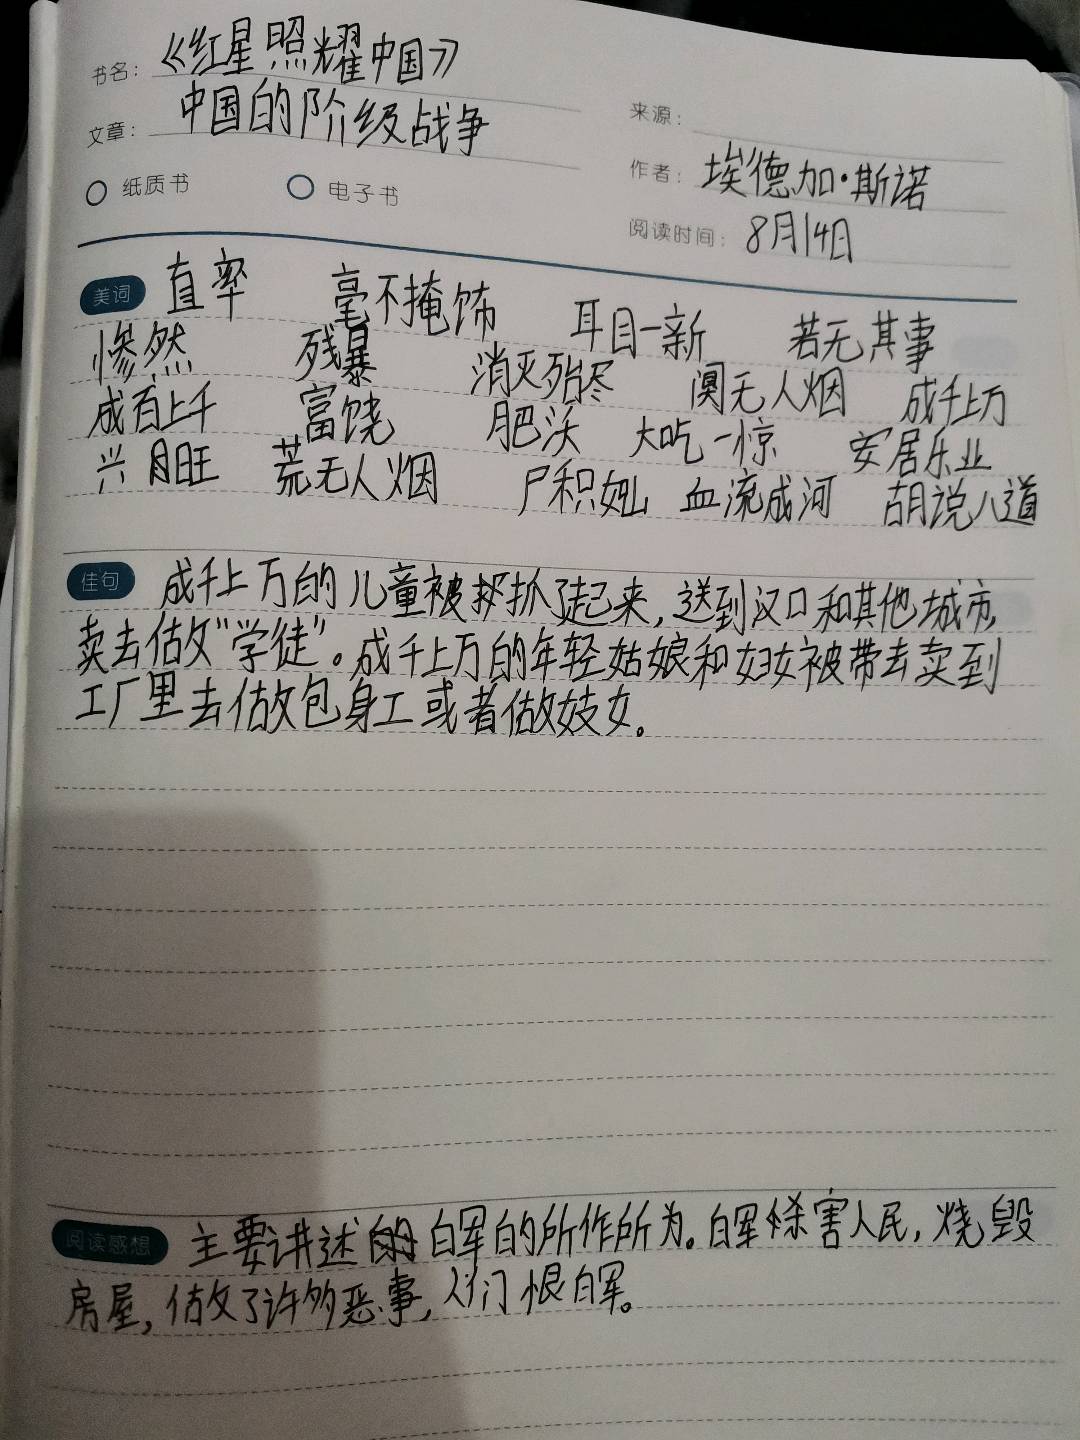 书名：《红星照耀中国》
文章：中国的阶级战争
来源：
纸质书 电子书
作者：埃德加·斯诺
阅读时间：8月14日
美词 直率 毫不掩饰 耳目一新 若无其事
惨然 残暴 消灭殆尽 阒无人烟 成千上万
成百上千 富饶 肥沃 大吃一惊 安居乐业
兴旺 荒无人烟 尸积如山 血流成河 胡说八道
佳句 成千上万的儿童被抓了起来，送到汉口和其他城市，
卖去做"学徒"。成千上万的年轻姑娘和妇女被带去卖到
工厂里去做包身工或者做妓女。
阅读感想 主要讲述白军的所作所为。白军杀害人民，烧毁
房屋，做了许多恶事，人们恨白军。